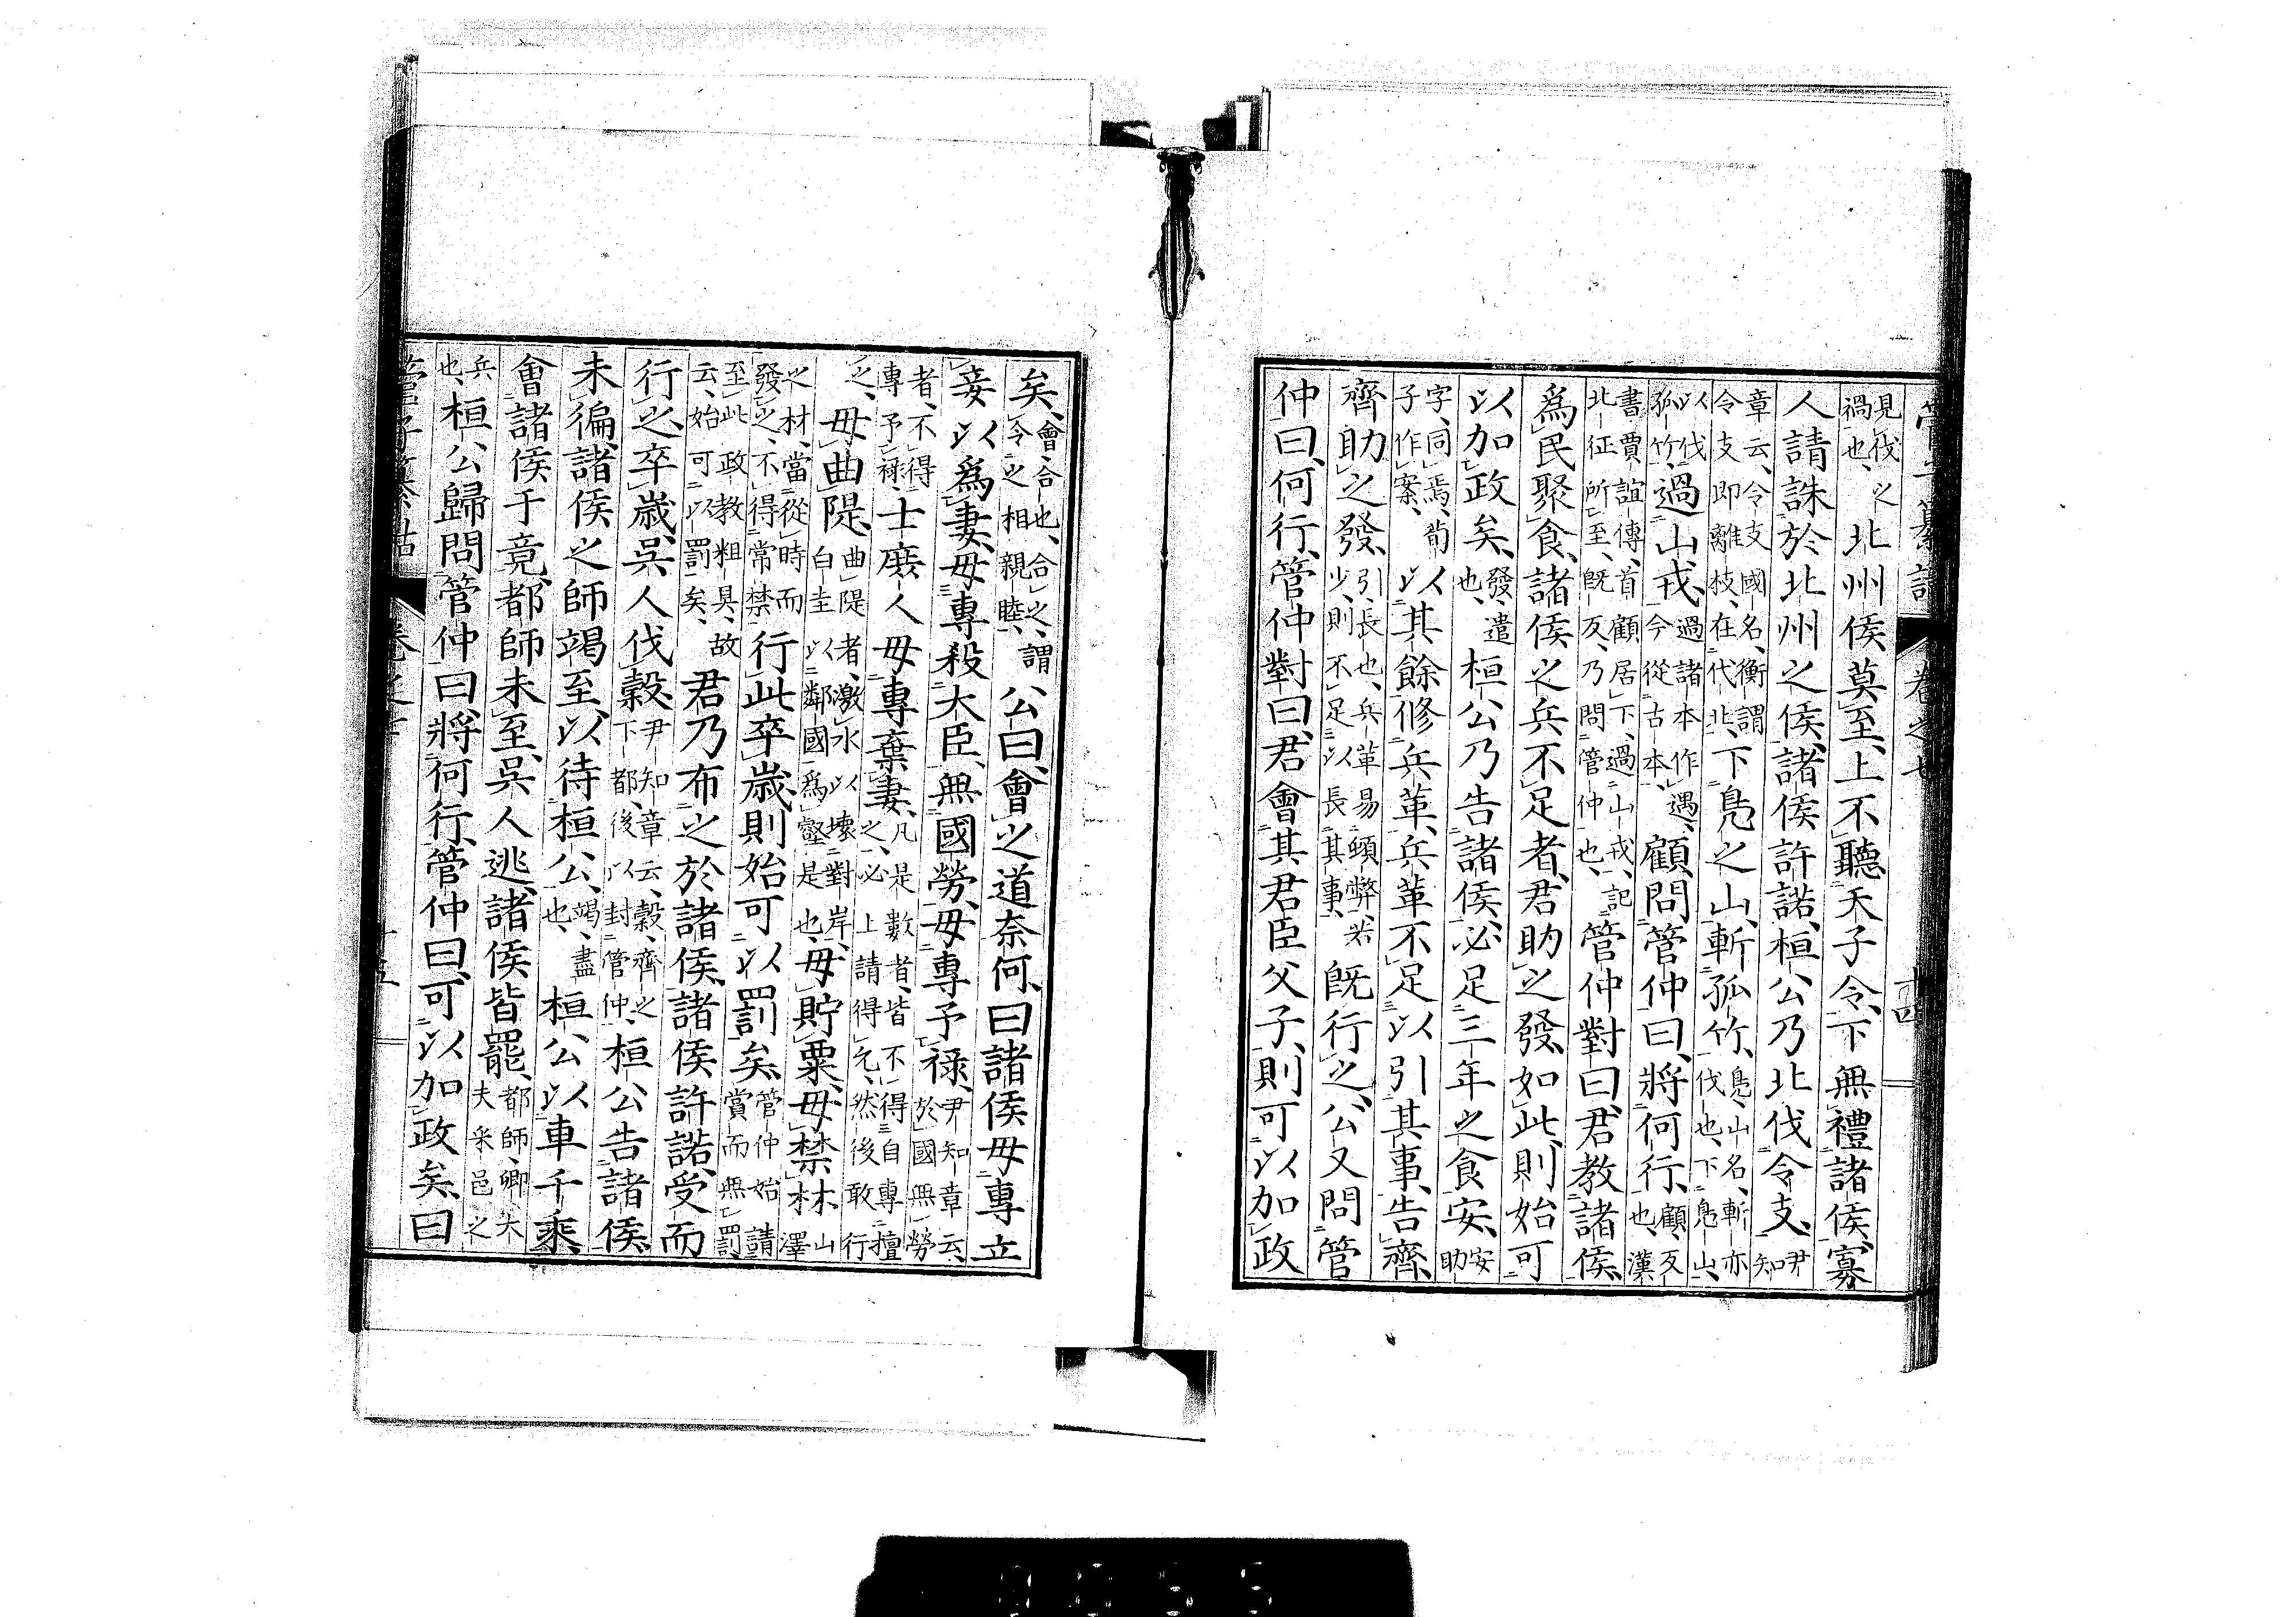 管子纂詁 卷之七 十四
見伐之禍也、北州侯莫至、上不聽天子令、下無禮諸侯、寡
人請誅於北州之侯、諸侯許諾、桓公乃北伐令支、尹知
章云、令支國名、衡謂令支即離枝、在代北、下鳧之山、斬孤竹、鳧山名、斬亦伐也、下鳧山、
以伐孤竹、過山戎、過諸本作遇、今從古本、顧問管仲曰、將何行、顧反也、漢
書賈誼傳、首顧居下、過山戎、記北征所至、既反、乃問管仲也、管仲對曰、君教諸侯
爲民聚食、諸侯之兵不足者、君助之發、如此則始可
以加政矣、發遣也、桓公乃告諸侯、必足三年之食安、安助
字、同焉、荀子作案、以其餘修兵革、兵革不足、以引其事、告齊、
齊助之發、引長也、兵革易頓弊、若少、則不足以長其事、既行之、公又問管
仲曰、何行、管仲對曰、君會其君臣父子、則可以加政
矣、會、合也、合之、謂令之相親睦、公曰、會之道奈何、曰諸侯毋專立
妾以爲妻、毋專殺大臣、無國勞、毋專予祿、尹知章云、於國無勞
者、不得專予祿、士庶人毋專棄妻、凡是數者、皆不得自專擅之、必上請得允、然後敢行
之、毋曲隄、曲隄者、激水以壞對岸、白圭以鄰國爲壑是也、毋貯粟、毋禁材、山澤
之材、當從時而發之、不得常禁、行此卒歲、則始可以罰矣、管仲始請賞而無罰、
至此政教粗具、故云、始可以罰矣、君乃布之於諸侯、諸侯許諾、受而
行之、卒歲、吳人伐穀、尹知章云、穀、齊之下都、後以封管仲、桓公告諸侯、
未徧、諸侯之師竭至、以待桓公、竭、盡也、桓公以車千乘、
會諸侯于竟、都師未至、吳人逃、諸侯皆罷、都師、卿大夫采邑之
兵也、桓公歸問管仲曰、將何行、管仲曰、可以加政矣、曰
管子纂詁 卷之七 十五